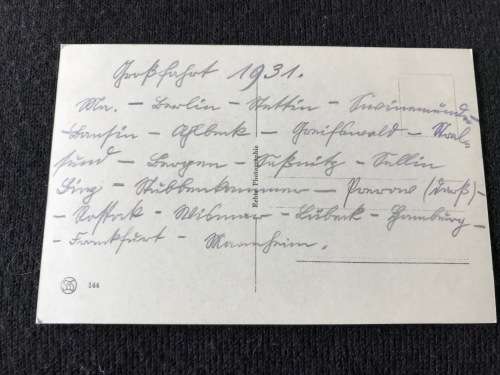 Großfahrt 1931.
Mn. – Berlin – Stettin – Swinemünde –
Bansin – Ahlbeck – Greifswald – Stral-
sund – Bergen – Saßnitz – Sellin
Binz – Stubbenkammer – Prerow (Darß) –
– Rostock – Wismar – Lübeck – Hamburg –
– Frankfurt – Mannheim.
Echte Photographie
144